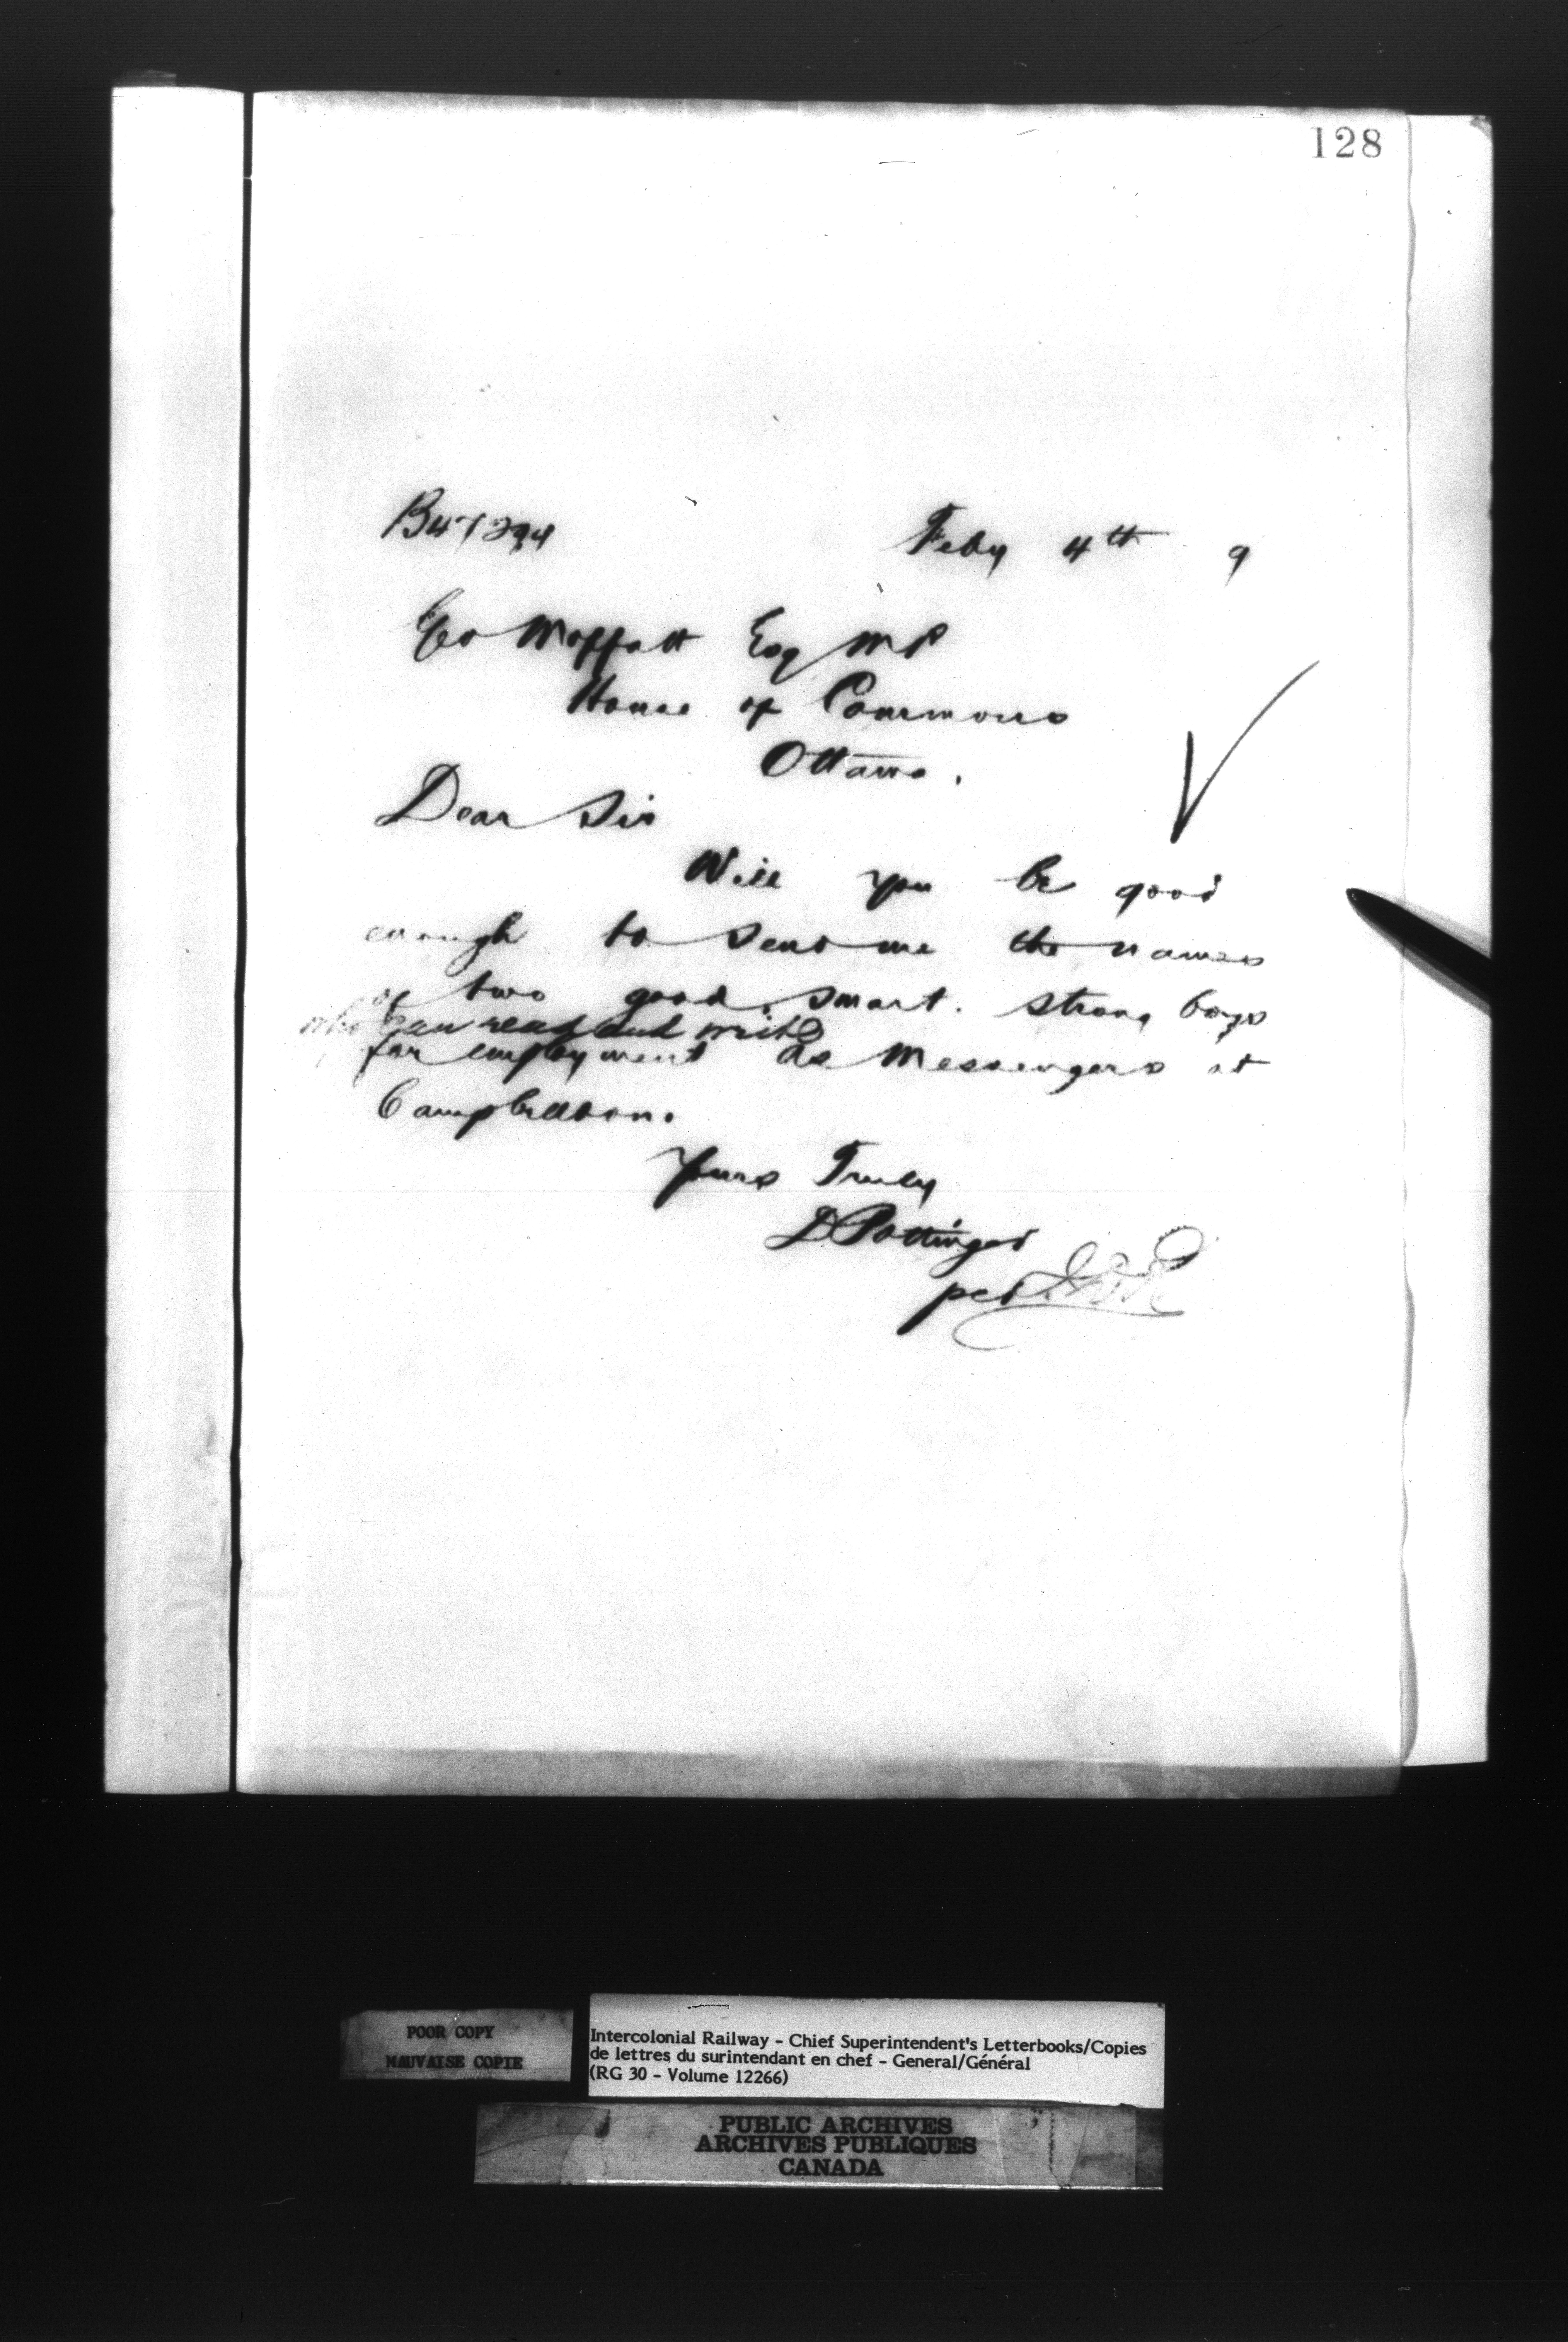 128
Feby 4th 9
Geo Moffatt Esq MP
House of Commons
Ottawa.
Dear Sir
Will you be good
enough to send me the names
of two good, smart. strong boys
who can read and write
for employment as Messengers at
Campbellton.
Yours Truly
D Pottinger
per
POOR COPY
MAUVAISE COPIE
Intercolonial Railway - Chief Superintendent's Letterbooks/Copies
de lettres du surintendant en chef - General/Général
(RG 30 - Volume 12266)
PUBLIC ARCHIVES
ARCHIVES PUBLIQUES
CANADA